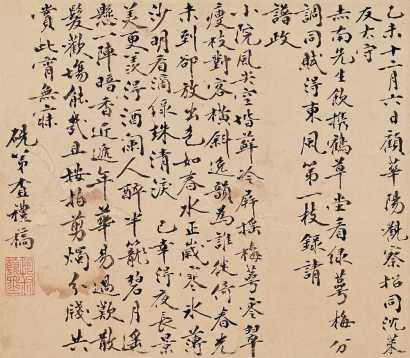 己未十二月六日顧華陽觀察招同沈萊
友太守
南先生飲鶴草堂看綠萼梅分
調同賦得東風第一枝錄請
譜政
小院風尖空蘚冷屏搖梅萼零翠
瘦枝對客橫斜逸韻為誰徙倚春光
未到卻放出色如春水正歲寒水薄
沙明看滴綠珠清淚 已幸得夜長景
美更羨得酒闌人醉半籠碧月遙
懸陣暗香近遞年華易過歎散
髮歡場能幾且按拍剪燭分牋共
賞此宵無寐
弟禮稿